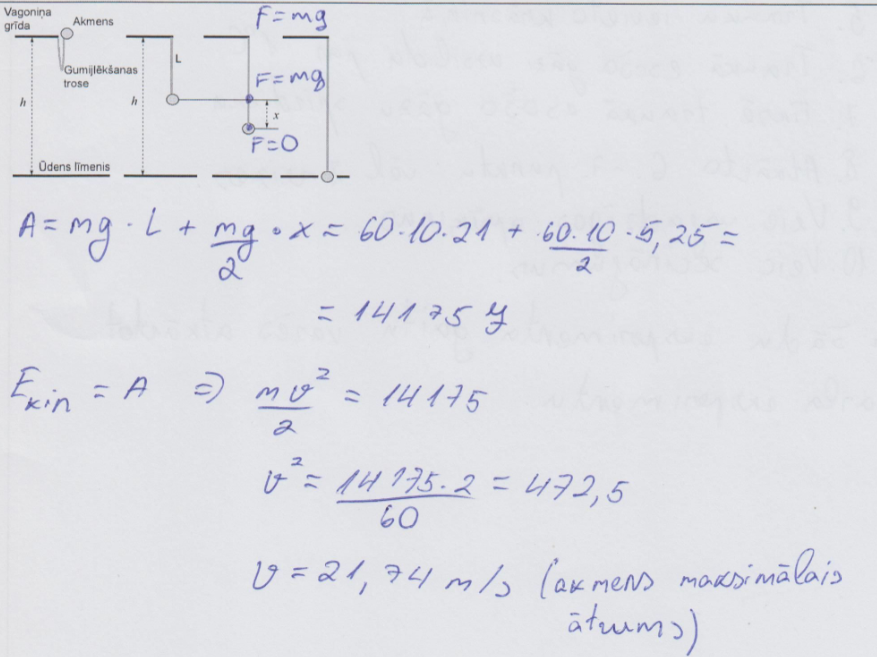 Vagoniņa
grīda
Akmens
F=mg
L
Gumijlēkšanas
trose
F=mg
h
h
x
F=0
Ūdens līmenis
A = mg · L + mg/2 · x = 60·10·21 + 60·10/2 · 5,25 =
= 14175 J
Ekin = A ⇒ mv²/2 = 14175
v² = 14175·2/60 = 472,5
v = 21,74 m/s (akmens maksimālais
ātrums)